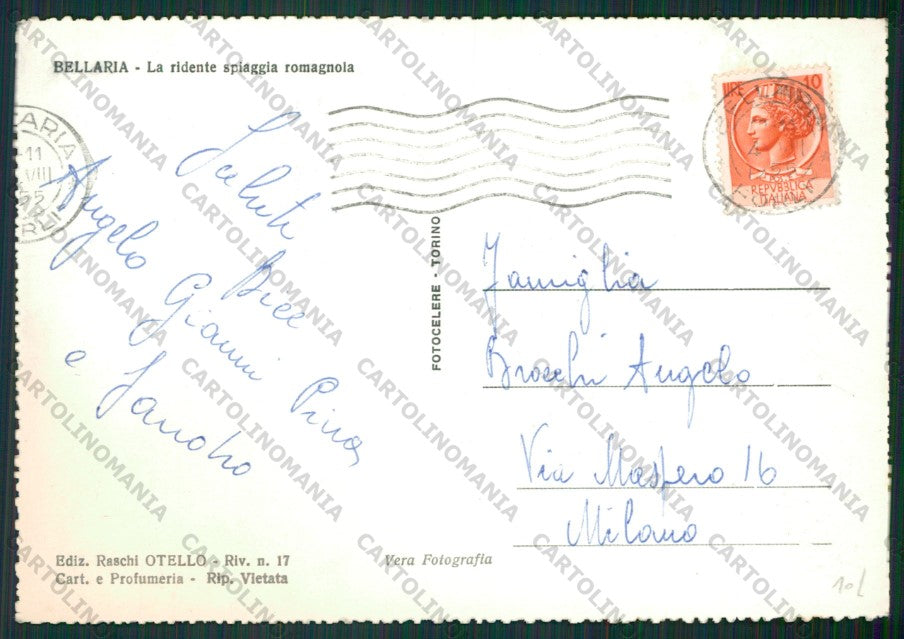 BELLARIA - La ridente spiaggia romagnola
LIRE 10
REPVBBLICA
ITALIANA
11
VIII
55
Saluti
Bice
Angelo
Gianni Pina
e
FOTOCELERE - TORINO
Famiglia
Brocchi Angelo
Via Maspero 16
Milano
Ediz. Raschi OTELLO - Riv. n. 17
Cart. e Profumeria - Rip. Vietata
Vera Fotografia
10L
CARTOLINOMANIA